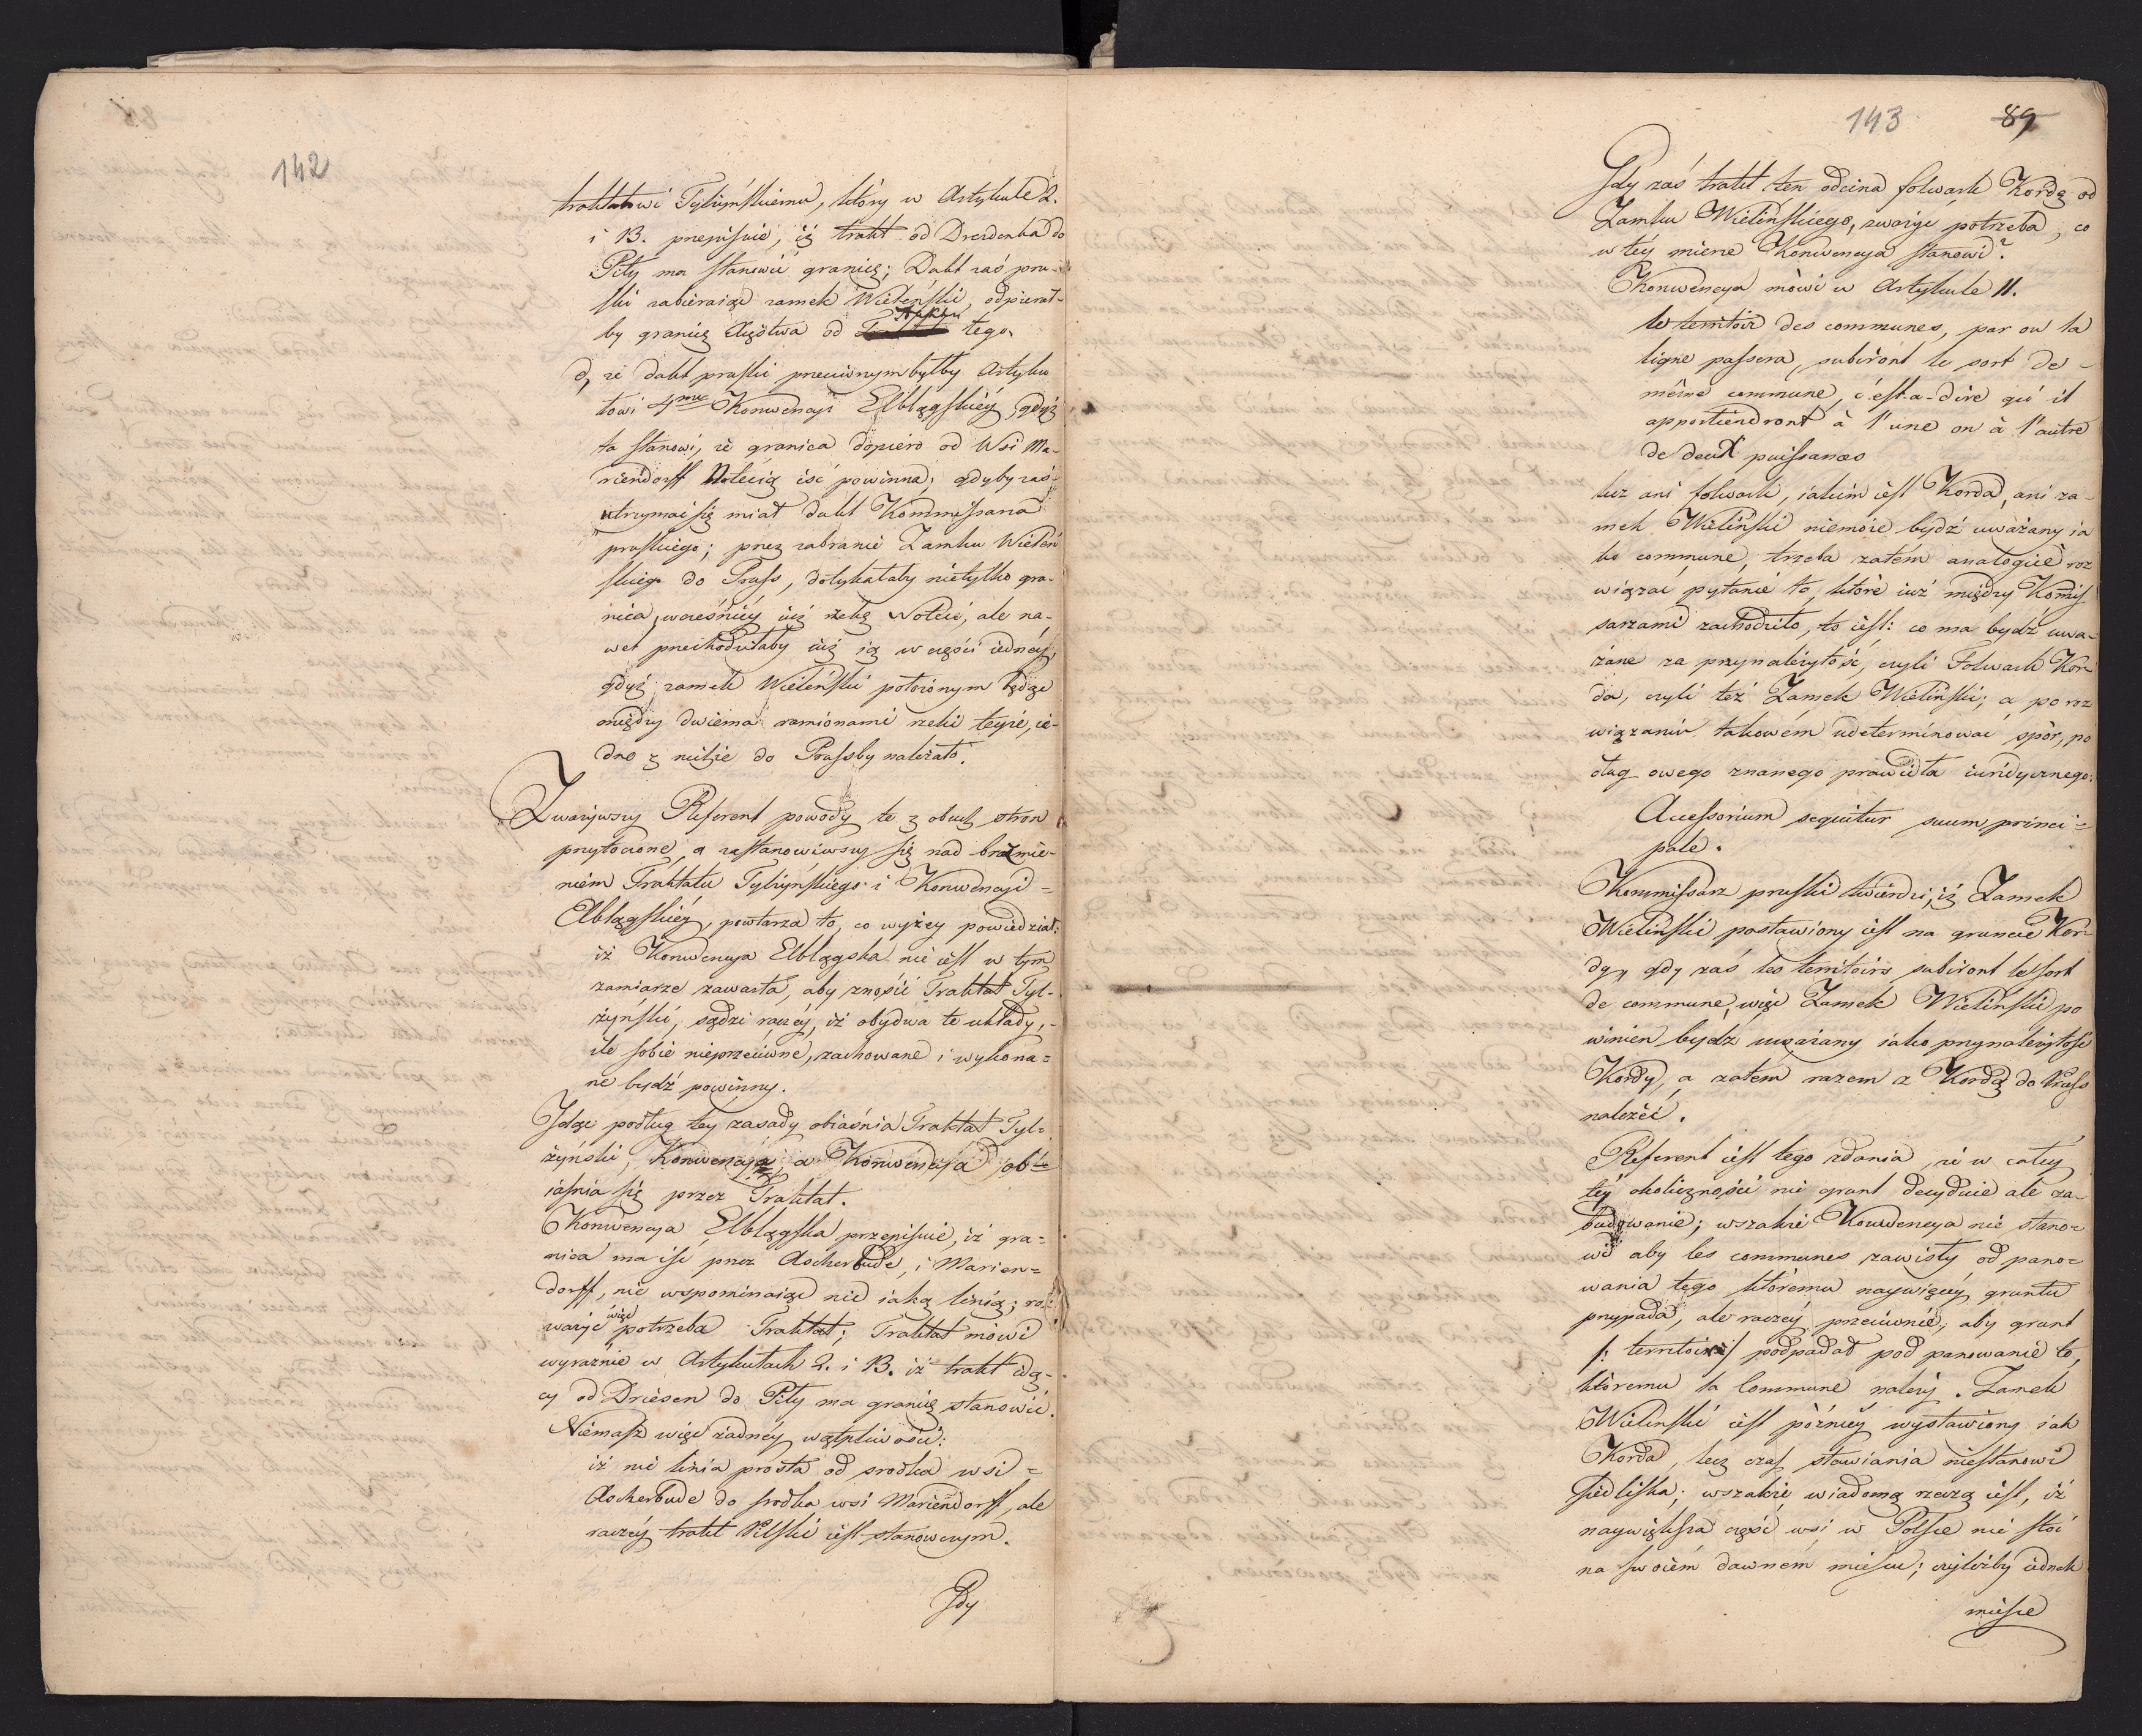 142
traktatowi Tylżyńskiemu, który w Artykule 2.
i 13. przepisuie, iż trakt od Drezdenka do
Piły ma stanowić granicę; Dukt zaś pru-
ski zabieraiąc zamek Wieleński, odpierał-
by granicę Xięstwa od Traktu tego.
d, że dukt pruski przeciwnym byłby Artyku
łowi 4me Konwencyi Elblągskiéy, gdyż
ta stanowi, że granica dopiero od Wsi Ma-
riendorff Notecią iść powinna; gdyby zaś
utrzymać się miał dukt Kommissarza
pruskiego; przez zabranie Zamku Wieleń
skiego do Pruss, dotykałaby nietylko gra-
nica wcześniéy iuż rzekę Noteć, ale na-
wet przechodziłaby iuż ią w części iednéy,
gdyż zamek Wieleński położonym będąc
między dwiema ramionami rzeki teyże, ie-
dno z nichże do Prussby należało.
Zważywszy Referent powody te z obuch stron
przytoczone, a zastanowiwszy się nad brzmie-
niem Traktatu Tylżyńskiego i Konwencyi =
Elblągskiéy, powtarza to, co wyżey powiedział:
iż Konwencya Elblągska nie iest w tym
zamiarze zawarta, aby znosić Traktat Tyl-
żyński, sądzi raczéy, iż obydwa te układy, -
ile sobie nieprzeciwne, zachowane i wykona=
ne bydź powinny.
Idąc podług tey zasady obiaśnia Traktat Tyl=
żyński, Konwencyą, a Konwencya ob=
iaśnia się przez Traktat.
Konwencya Elblągska przepisuie, iż gra=
nica ma iść przez Ascherbude, i Marien=
dorff, nie wspominaiąc nic iaką linią; roz
ważyć więc potrzeba Traktat; Traktat mówi
wyraźnie w Artykułach 2. i 13. iż trakt idą-
cy od Driesen do Piły ma granicę stanowić.
Niemasz więc żadnéy wątpliwości:
iż nie linia prosta od srodka wsi =
Ascherbude do srodka wsi Mariendorff, ale
raczéy trakt Pilski iest stanowczym.
Gdy
143 89
Gdy zaś trakt ten odcina folwark Kordę od
Zamku Wielińskiego, zważyć potrzeba, co
w téy mierze Konwencya stanowi?
Konwencya mówi w Artykule 11.
le territoir des communes, par ou la
ligne passera, subiront le sort de -
même commune, c'est-a-dire qu'il
appartiendront à l'une on à l'autre
de deux puissances
lecz ani folwark, iakim iest Korda, ani za-
mek Wieliński niemoże bydź uważany ia
ko commune, trzeba zatém analogicè roz
wiązać pytanie to, które iuż między Komis
sarzami zachodziło, to iest: co ma bydź uwa-
żane za przynależytość, czyli Folwark Kor
da, czyli też Zamek Wieliński; a po roz
wiązaniu takowém udeterminować spór, po
dług owego znanego prawidła iuridycznego:
Accessorium sequitur suum princi=
pale.
Kommissarz pruski twierdzi, iż Zamek
Wieliński postawiony iest na gruncie Kor
dy, gdy zaś les territoirs subiront le sort
de commune, więc Zamek Wieliński po
winien bydz uważany iako przynależytość
Kordy, a zatem razem z Kordą do Pruss
należeć.
Referent iest tego zdania, że w całey
téy okoliczności nie grunt decyduie ale za-
budowanie; wszakże Konwencya nie stano=
wi aby les communes zawisły od pano=
wania tego któremu naywięcéy gruntu
przypada, ale raczéy przeciwnie, aby grunt
/: territoir :/ podpadał pod panowanie to,
któremu ta Commune należy. Zamek
Wielinski iest późniéy wystawiony iak
Korda, lecz czas stawiania niestanowi
siedliska; wszakże wiadomą rzeczą iest, iż
naywiększa część wsi w Polsce nie stoi
na swoiém dawném mieyscu; czyliżby iednak
mieysce